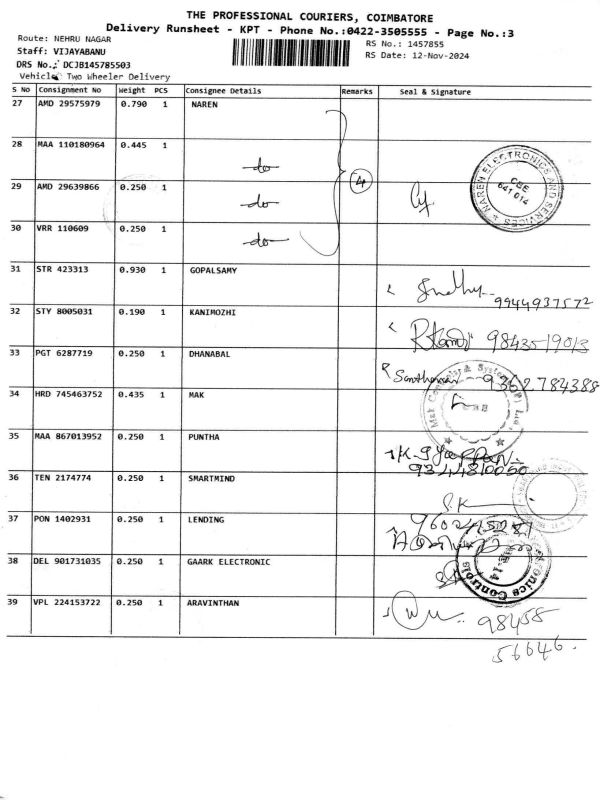 THE PROFESSIONAL COURIERS, COIMBATORE
Delivery Runsheet - KPT - Phone No.:0422-3505555 - Page No.:3
Route: NEHRU NAGAR
RS No.: 1457855
Staff: VIJAYABANU
RS Date: 12-Nov-2024
DRS No.: DCJB145785503
Vehicle Two Wheeler Delivery
S No Consignment No Weight PCS Consignee Details Remarks Seal & Signature
27 AMD 29575979 0.790 1 NAREN
28 MAA 110180964 0.445 1 -do-
29 AMD 29639866 0.250 1 -do- 4
NAREN ELECTRONICS AND SERVICES
CBE
641 014
30 VRR 110609 0.250 1 -do-
31 STR 423313 0.930 1 GOPALSAMY
9944937572
32 STY 8005031 0.190 1 KANIMOZHI
9843519013
33 PGT 6287719 0.250 1 DHANABAL
9362784388
34 HRD 745463752 0.435 1 MAK
35 MAA 867013952 0.250 1 PUNTHA
9344810050
36 TEN 2174774 0.250 1 SMARTMIND
S.K
37 PON 1402931 0.250 1 LENDING
38 DEL 901731035 0.250 1 GAARK ELECTRONIC
39 VPL 224153722 0.250 1 ARAVINTHAN
98458
56646.